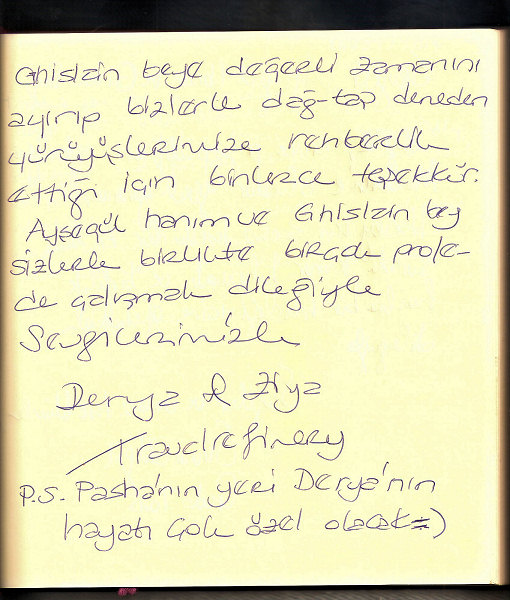 Ghislain beye değerli zamanını
ayırıp bizlerle dağ-tap demeden
yürüyüşlerimize rehberlik
ettiği için binlerce teşekkür.
Ayşegül hanım ve Ghislain bey
sizlerle birlikte birçok proje-
de çalışmak dileğiyle
Sevgilerimizle
Derya & Ziya
Travelrefinery
P.S. Pasha'nın yeri Derya'nın
hayatı çok özel olacak =)